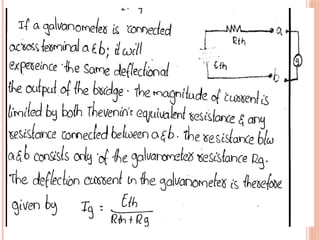 If a galvanometer is connected
across terminal a & b; it will
expereince the same deflectional
the output of the bridge. the magnitude of current is
limited by both Thevenin's equivalent resistance & any
resistance connected between a & b. The resistance b/w
a & b consists only of the galvanometer resistance Rg.
The deflection current in the galvanometer is therefore
given by Ig = Eth / Rth + Rg
Rth
a
Eth
g
b